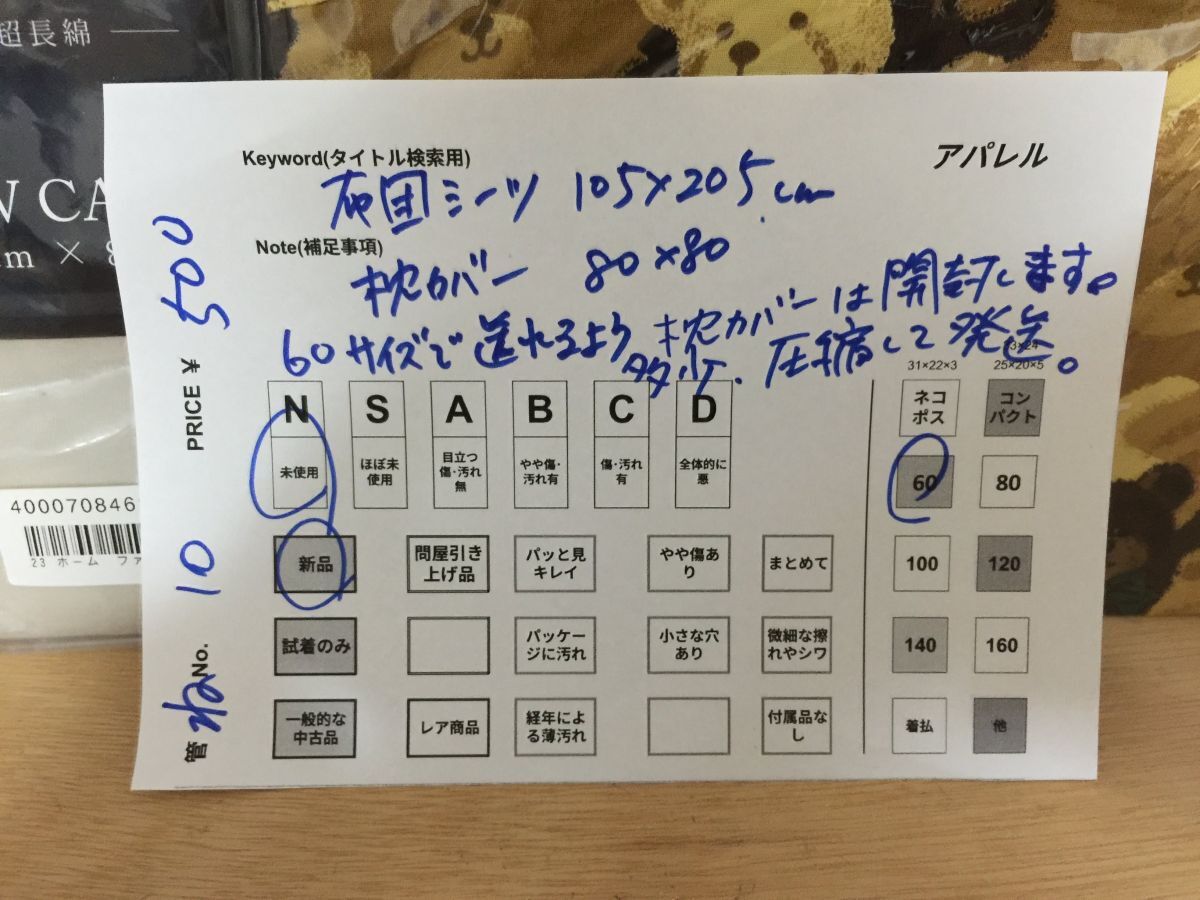 超長綿
W CA
m × 8
400070846
23 ホーム ファ
Keyword(タイトル検索用)
アパレル
布団シーツ 105×205cm
Note(補足事項)
枕カバー 80×80
60サイズで送れるよう枕カバーは開封します。
多少、圧縮して発送。
PRICE ¥ 500
管 No. ね 10
N
未使用
S
ほぼ未使用
A
目立つ傷・汚れ無
B
やや傷・汚れ有
C
傷・汚れ有
D
全体的に悪
新品
問屋引き上げ品
パッと見キレイ
やや傷あり
まとめて
試着のみ
パッケージに汚れ
小さな穴あり
微細な擦れやシワ
一般的な中古品
レア商品
経年による薄汚れ
付属品なし
31×22×3
25×20×5
ネコポス
コンパクト
60
80
100
120
140
160
着払
他